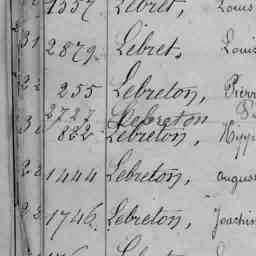 1557 Lebret, Louis
31 2879 Lebret, Louis
255 Lebreton, Pierre
2727 Lebreton
822 Lebreton, Hyp
22 1444 Lebreton, august
22 1746 Lebreton, Joachim